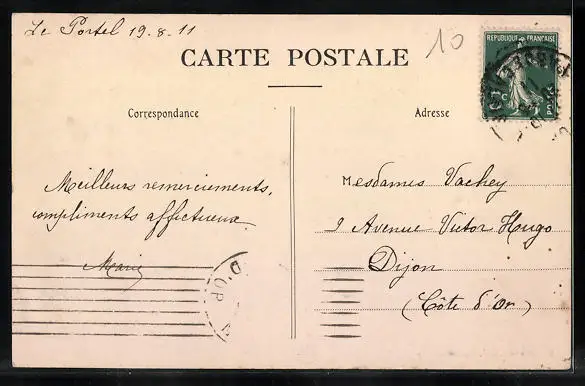 Le Portel 19.8.11
10
CARTE POSTALE
REPUBLIQUE FRANÇAISE
5c
POSTES
Correspondance
Adresse
Meilleurs remerciements,
compliments affectueux.
Marie
Mesdames Vachey
9 Avenue Victor Hugo
Dijon
(Côte d'Or)